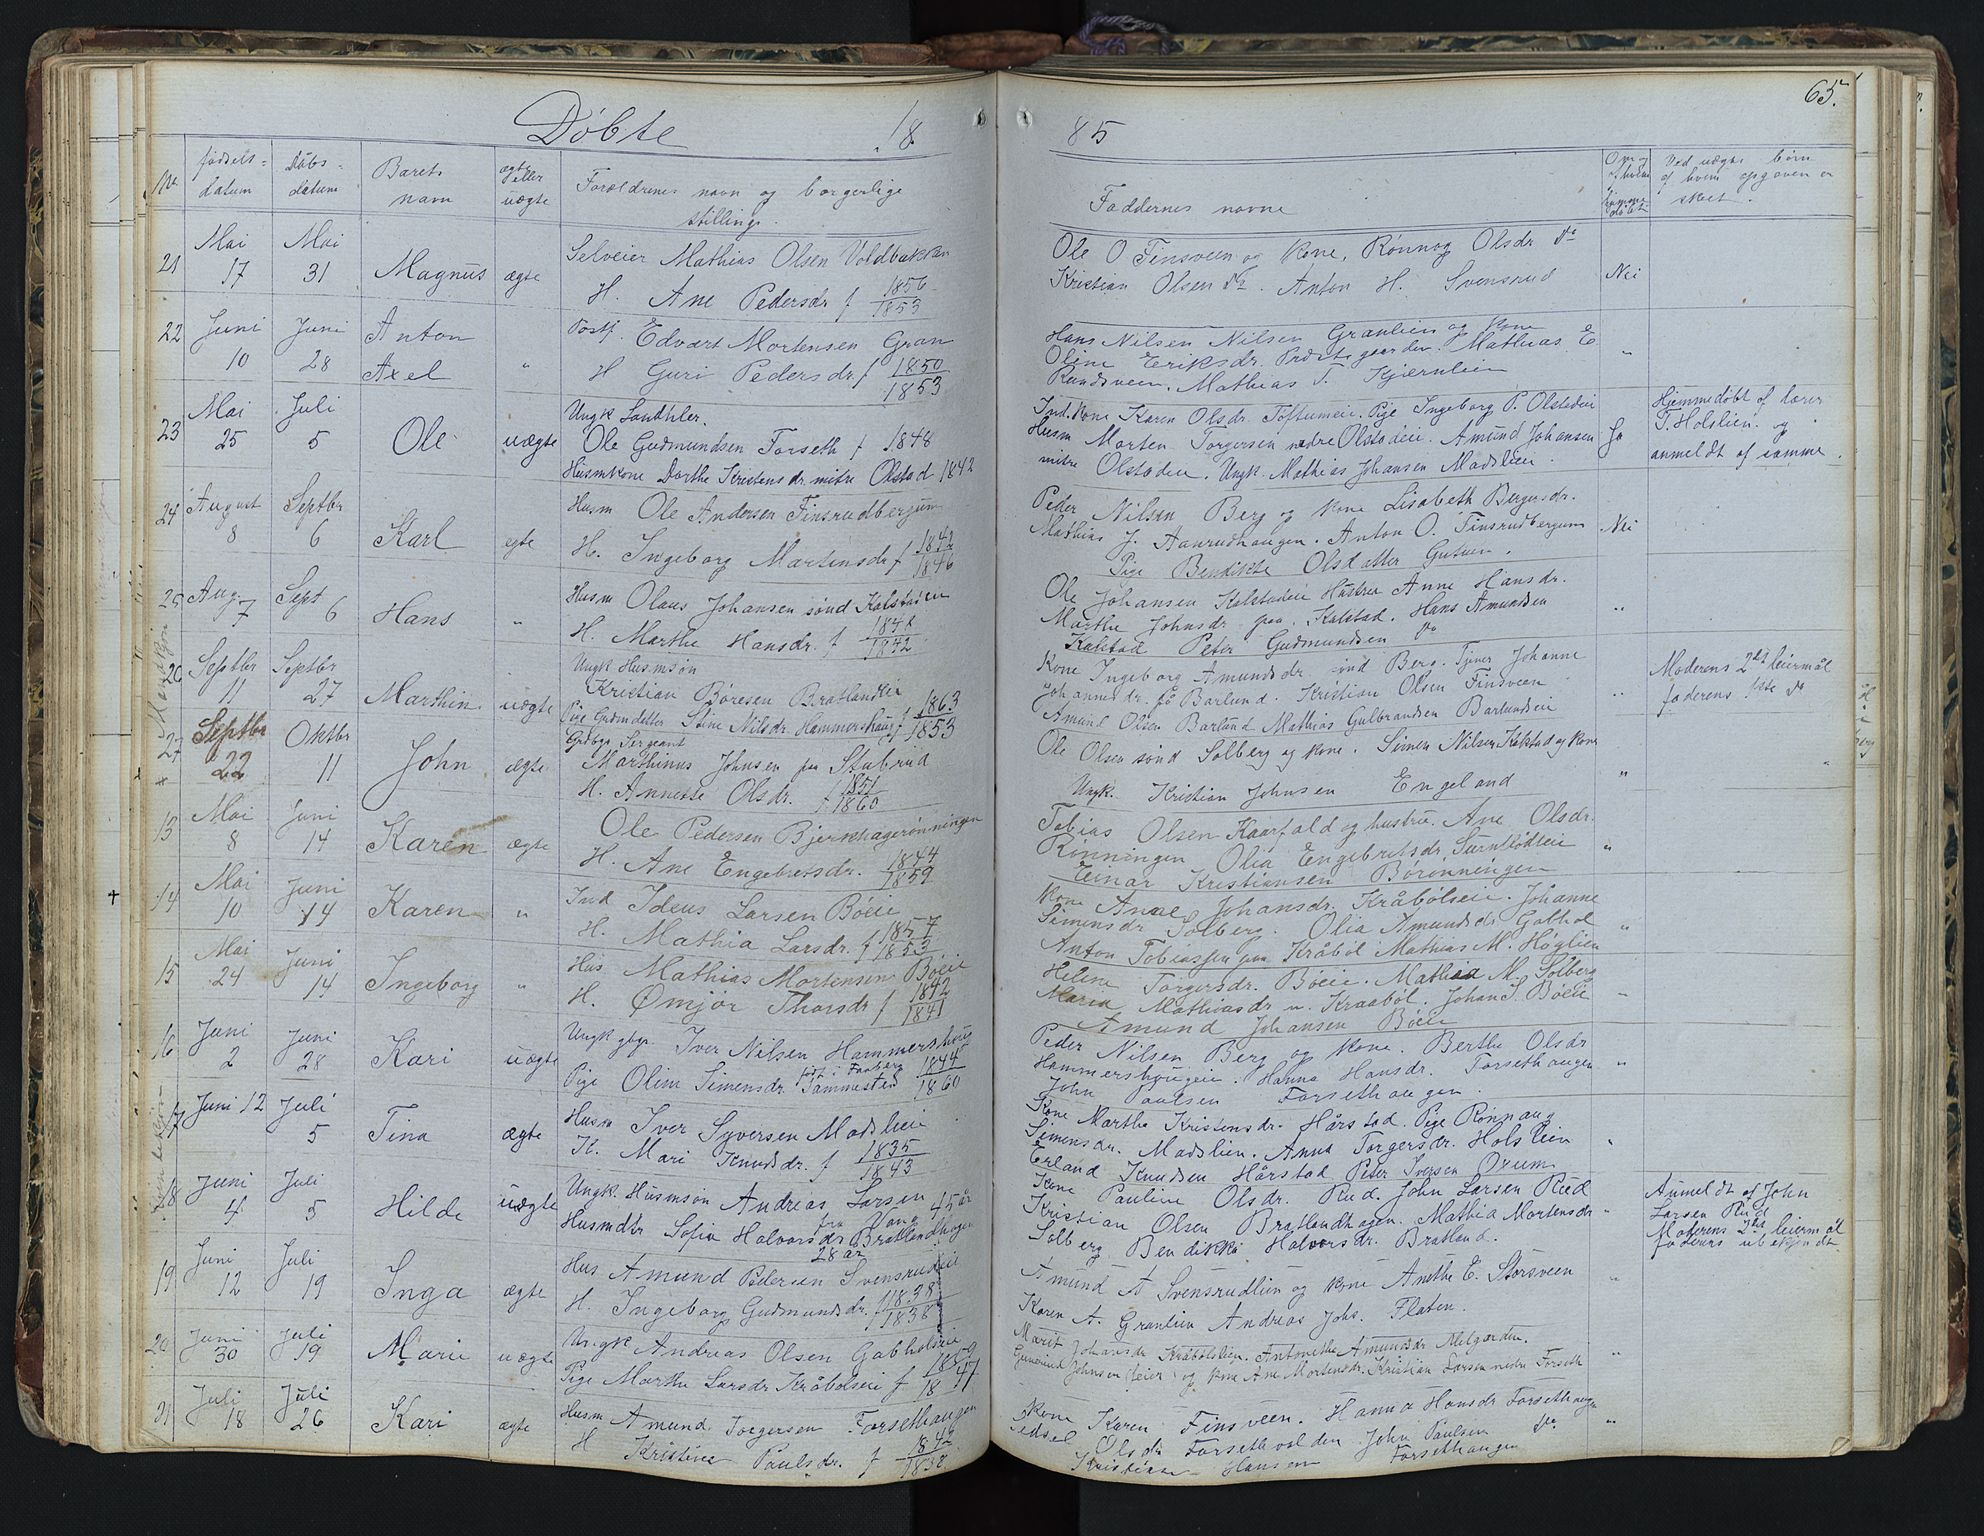 65.
Døbte 18 85
No. fødsels= datum
Døbs= datum
Barets navn
ægte eller uægte
Forældrenes navn og borgerlige stilling.
Faddernes navne
Ved uægte børn
af hvem opgaven er
skeet.
21 Mai 17 Mai 31 Magnus ægte
Selveier Mathias Olsen Voldbakken
H. Ane Pedersdr f 1856 1853
Ole O Finsveen og kone, Rønnog Olsdr do
Kristian Olsen do. Anton H. Svensrud Nei
22 Juni 10 Juni 28 Anton Axel "
Postf. Edvart Mortensen Gran
H Guri Pedersdr. f 1850 1853
Hans Nilsen Nilsen Granlien og kone
Oline Eriksdr. Præstegaarden. Mathias E. "
Rundsveen. Mathias T. Kjernlien
23 Mai 25 Juli 5 Ole uægte
Ungk Landhler.
Ole Gudmundsen Forseth f 1848
Husmkone Dorthe Kristensdr. mitre Olstad 1842
Ind. kone Karen Olsdr. Toftumeie. Pige Ingeborg P. Olstadeie
Husm Morten Torgersen nedre Olstadeie. Amund Johansen Ja
mitre Olstadeie. Ungk. Mathias Johansen Madslien.
Hjemmedøbt af lærer
T. Holslien. og
anmeldt af samme.
24 August 8 Septbr 6 Karl egte
Husm Ole Andersen Finsrudberjum
H. Ingeborg Martensdr f 1842 1846
Peder Nilsen Berg og kone Lisabeth Bergersdr.
Mathias J. Aanrudhaugen. Anton O. Finsrudbergum Nei
Pige Bendikte Olsdatter Gutuen.
25 Aug. 7 Sept 6 Hans "
Husm Olaus Johansen sønd Kalstadeie
H. Marthe Hansdr. f 1842
Ole Johansen Kalstadeie Hustru Anne Hansdr.
Marthe Johnsdr. paa Kalstad. Hans Amundsen "
Kalstad Peter Gudmundsen do
26 Septbr 11 Septbr 27 Marthin uægte
Ungk Husmsøn
Kristian Børesen Bratlandlie
Pige Gudmdatter Stine Nilsdr. Hammershaug f 1863 1853
Kone Ingeborg Amundsdr sønd Berg. Tjener Johanne
Johannesdr. på Barlund. Kristian Olsen Finsveen "
Amund Olsen Barlund Mathias Gulbrandsen Barlundseie
Moderens 2det leiermål
faderens 1ste do
27 Septbr 22 Oktbr 11 John ægte
Grdbgr Sergeant
Marthinus Johnsen paa Stubrud
H. Annette Olsdr. f 1851 1860
Ole Olsen sønd Solberg og kone. Simen Nilsen Kalstad og kone
Ungk. Kristian Johnsen Engeland "
13 Mai 8 Juni 14 Karen ægte
Ole Pedersen Bjerkhagerønningen
H. Ane Engebretsdr. 1844 1859
Tobias Olsen Kaarfald og hustrie. Ane Olsdr.
Rønningen Olia Engebretsdr. Surnflødteie "
Einar Kristiansen Børønningen
14 Mai 10 Juni 14 Karen "
Ind Ideus Larsen Bøeie
H. Mathia Larsdr. f 1857 1853
Kone Anne Johansdr. Kråbølseie. Johanne
Simensdr Solberg. Olia Amundsdr Gobhol "
Anton Tobiassen paa Kråbøl Mathias M. Høglien
15 Mai 24 Juni 14 Ingeborg "
Hus Mathias Mortensen Bøeie
H. Ømjør Thorsdr f 1842 1841
Helene Torgersdr. Bøeie. Mathia M. Solberg
Maria Mathiasdr n. Kraabøl. Johan S. Bøeie "
Amund Johansen Bøeie
16 Juni 2 Juni 28 Kari uægte
Ungk gbgr. Iver Nilsen Hammershaug
Pige Olim Simensdr. født i Faaberg Sammesten 1844 1860
Peder Nilsen Berg og kone. Berthe Olsdr
Hammershougeie. Hanna Hansdr. Forsethaugen "
John Paulsen Forsethaugen
17 Juni 12 Juli 5 Tina ægte
Husm Iver Syversen Madslien
K. Mari Knudsdr. f 1835 1843
Kone Marthe Kristensdr. Hårstad. Pige Rønnaug
Simensdr. Madslien. Anna Torgersdr. Holslien "
Erland Knudsen Hårstad Peter Iversen Orum
18 Juni 4 Juli 5 Hilde uægte
Ungk. Husmsøn Andreas Larsen
fra Vang 45 år
Husmdtr Sofia Halvorsdr Bratlandhagen
28 år
Kone Pauline Olsdr. Rud. John Larsen Rud
Kristian Olsen Bratlandhagen. Mathia Mortensdr "
Solberg Bendikke Halvorsdr. Bratland.
Anmeldt af John
Larsen Rud
Moderens 2det leiermål
faderens ubekjendt
19 Juni 12 Juli 19 Inga ægte
Hus Amund Pedersen Svensrudeie
H. Ingeborg Gudmundsdr. f 1838 1838
Amund A Svensrudlien og kone Anethe E. Storsveen "
Karen A. Granlien Andreas Johs. Flaten.
20 Juni 30 Juli 19 Marie uægte
Ungk Andreas Olsen Gobholseie
Pige Marthe Larsdr Kråbølseie f 1859 1847
Marit Johansdr Kråbølslien. Antonethe Amundsdr Melgarden. "
Gunelius Johnsen Leier og kone Ane Mortensdr. Kristian Larsen nedre Forseth
21 Juli 18 Juli 26 Kari ægte
Husm Amund Torgersen Forsethaugen
H Kristine Paulsdr. f 1842 1838
Kone Karen Finsveen. Hanna Hansdr Forsethaugen
Sidsel Olsdr Forsethvolden. John Paulsen do "
Kristian Hansen Forsethaugen